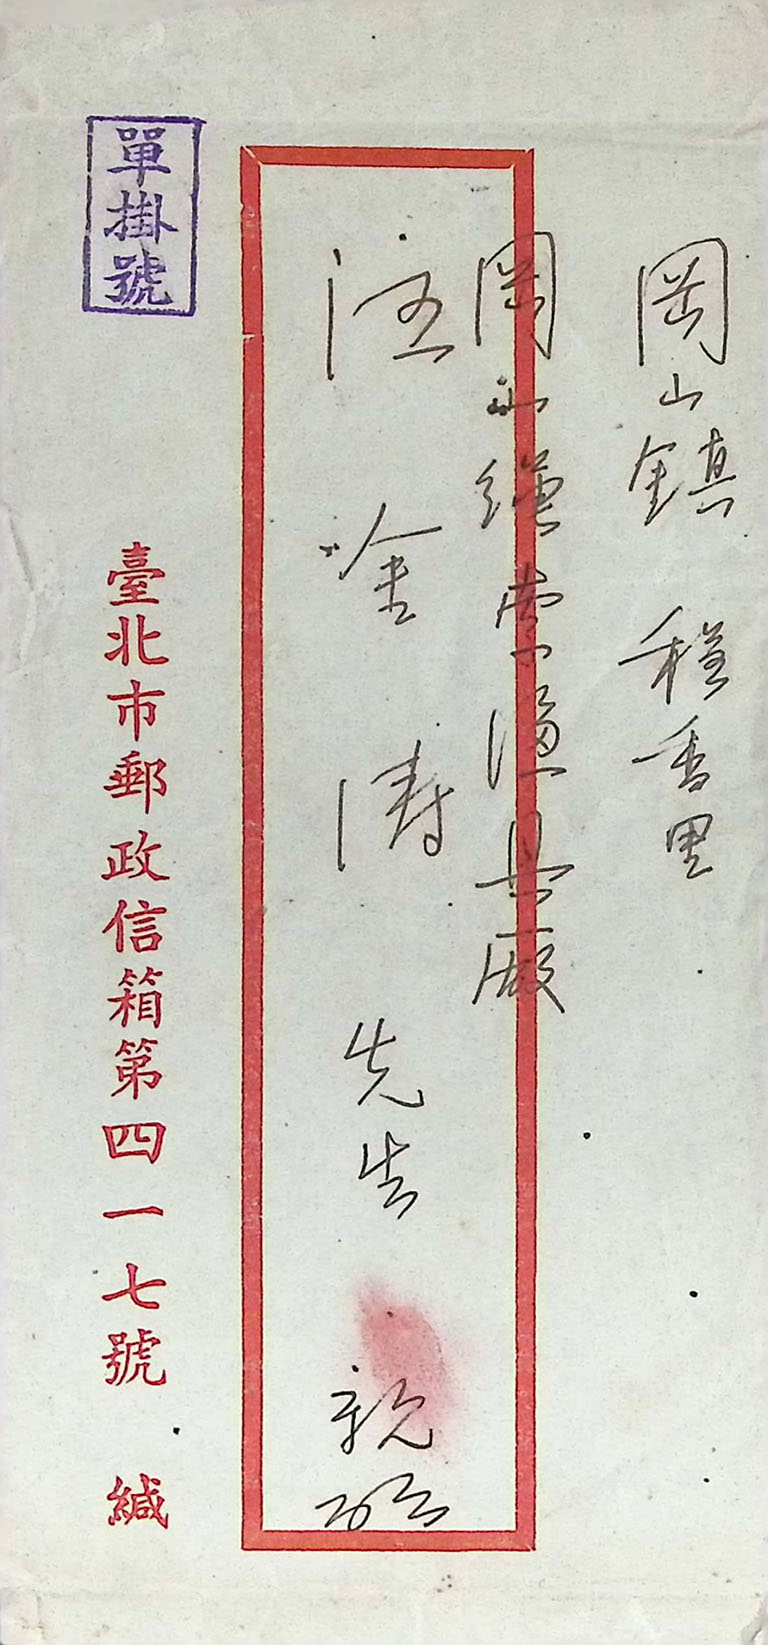 岡山鎮 程香里
岡山繩索漁具廠
汪 濤 先生 親啟
單掛號
臺北市郵政信箱第四一七號 緘